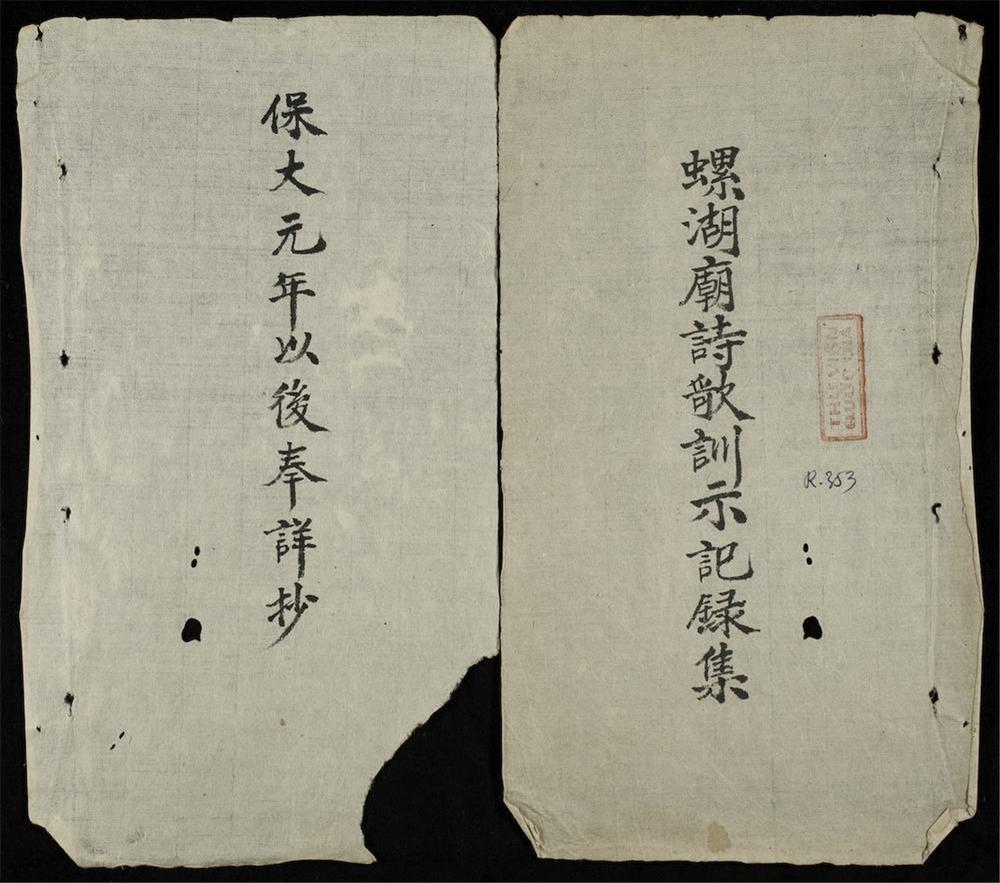 螺湖廟詩歌訓示記録集
THƯ VIỆN
QUỐC GIA
R.353
保大元年以後奉詳抄